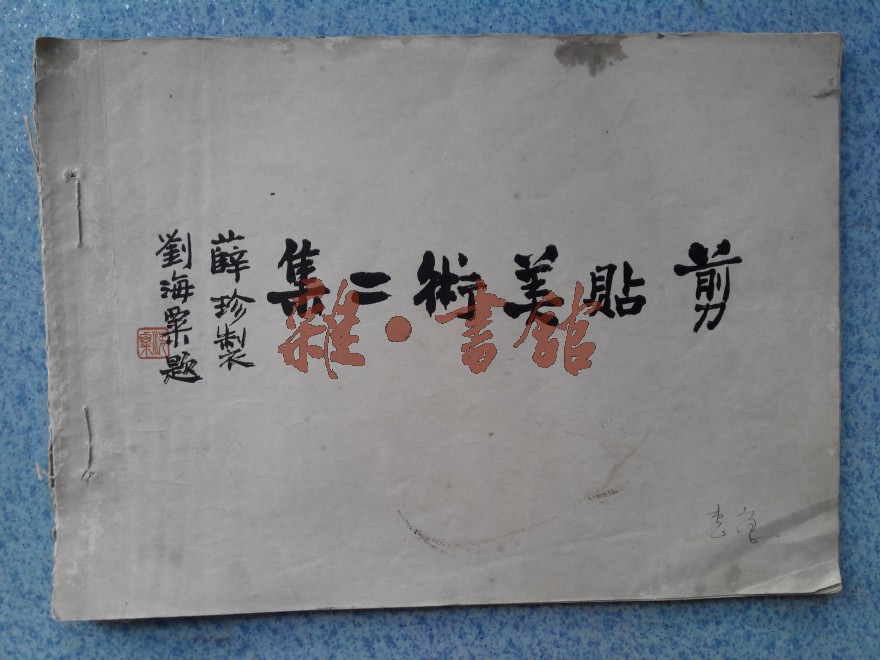 剪貼美術二集
薛珍製
劉海粟題
雜·書館